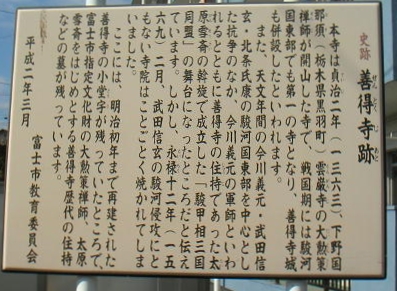 史跡 善得寺跡
本寺は貞治二年（一三六三）、下野国
那須（栃木県黒羽町）雲巌寺の大勲策
禅師が開山した寺で、戦国期には駿河
国東部でも第一の寺となり、善得寺城
も併設したといわれます。
また、天文年間の今川義元・武田信
玄・北条氏康の駿河国東部を中心とし
た抗争のなか、今川義元の軍師といわ
れるとともに善得寺の住持であった太
原雪斎の斡旋で成立した「駿甲相三国
同盟」の舞台になったところだと伝え
ています。しかし、永禄十二年（一五
六九）二月、武田信玄の駿河侵攻にと
もない寺院はことごとく焼かれてしま
いました。
ここには、明治初年まで再建された
善得寺の小堂宇が残っていたところで、
富士市指定文化財の大勲策禅師、太原
雪斎をはじめとする善得寺歴代の住持
などの墓が残っています。
平成二年三月
富士市教育委員会